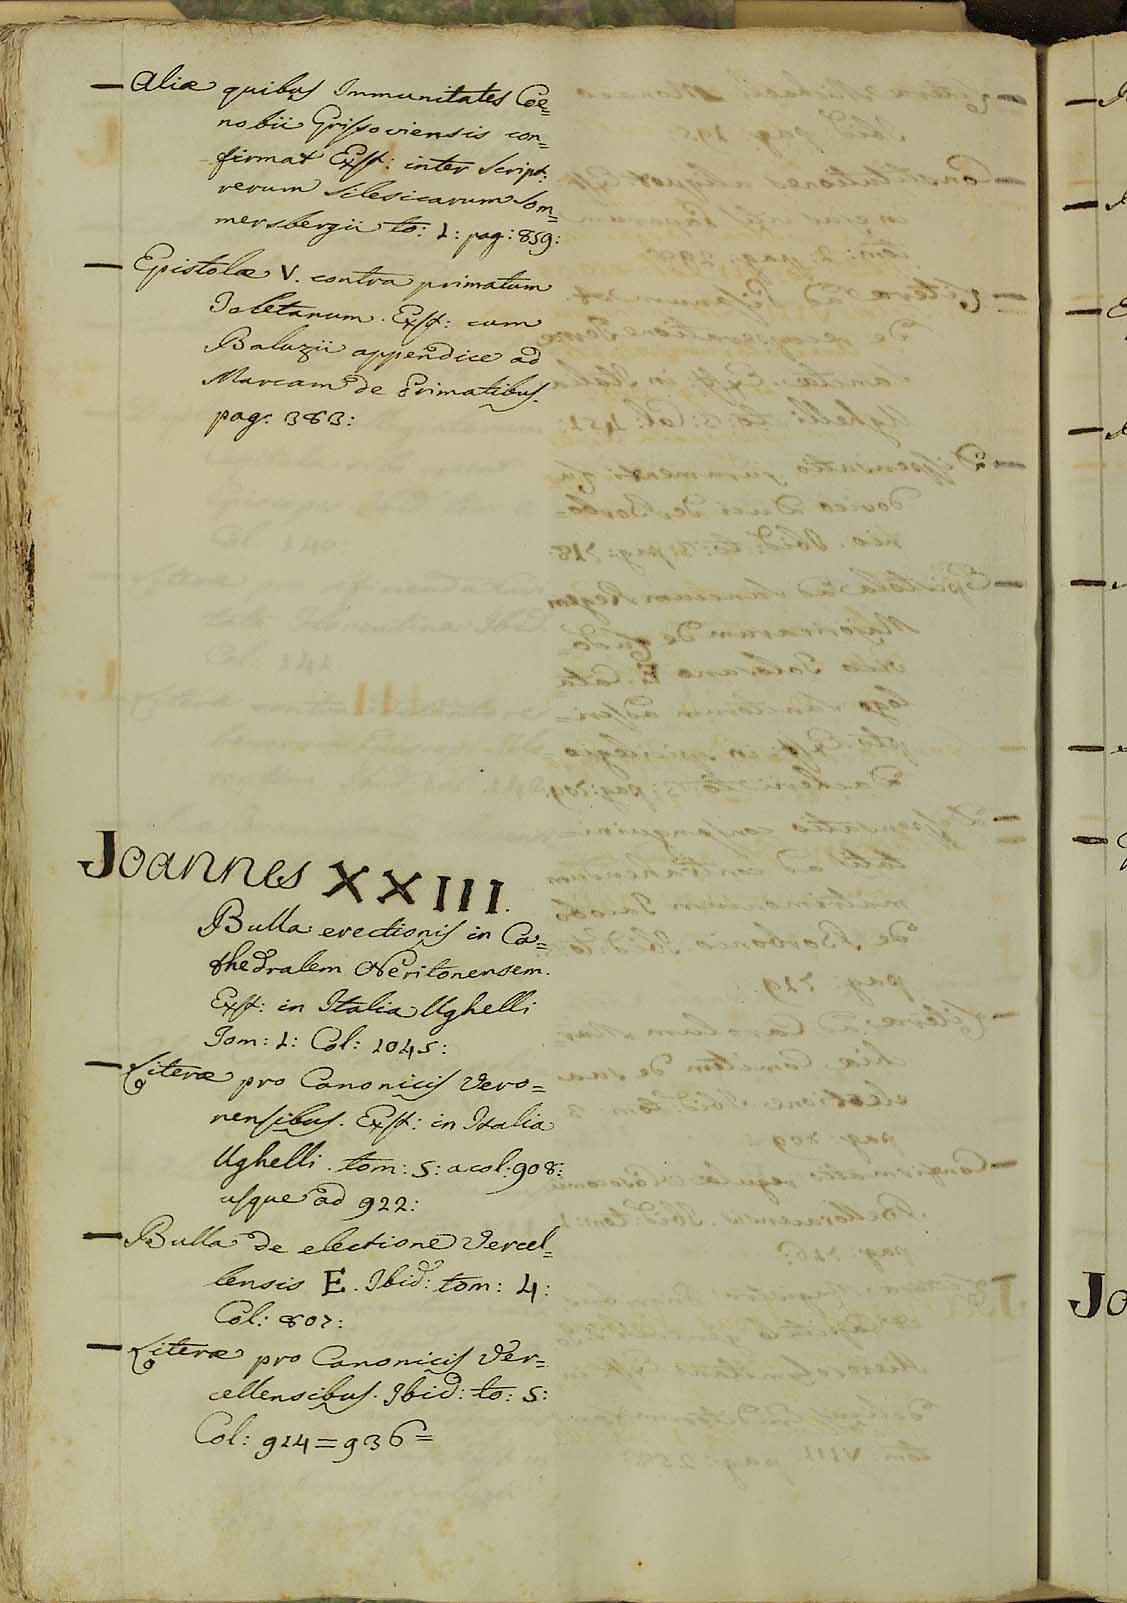 — Aliæ quibus Immunitates Cœ=
nobii Grissoviensis con=
firmat Exst: inter Script:
rerum Silesicarum Som=
mersbergii to: 1: pag: 859:
— Epistolæ V. contra primatum
Toletanum. Exst: cum
Baluzii appendice ad
Marcam de Primatibus.
pag: 383:
Joannes XXIII.
Bulla erectionis in Ca=
thedralem Neritonensem.
Exst: in Italia Ughelli
Tom: 1: Col: 1045:
— Literæ pro Canonicis Vero=
nensibus. Exst: in Italia
Ughelli. tom: 5: a col. 908:
usque ad 922:
— Bulla de electione Vercel=
lensis E. Ibid: tom: 4:
Col: 807:
— Literæ pro Canonicis Ver=
cellensibus. Ibid: to: 5:
Col: 914=936=